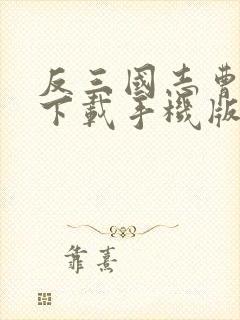 反三國志曹
下載手機版
靠熹